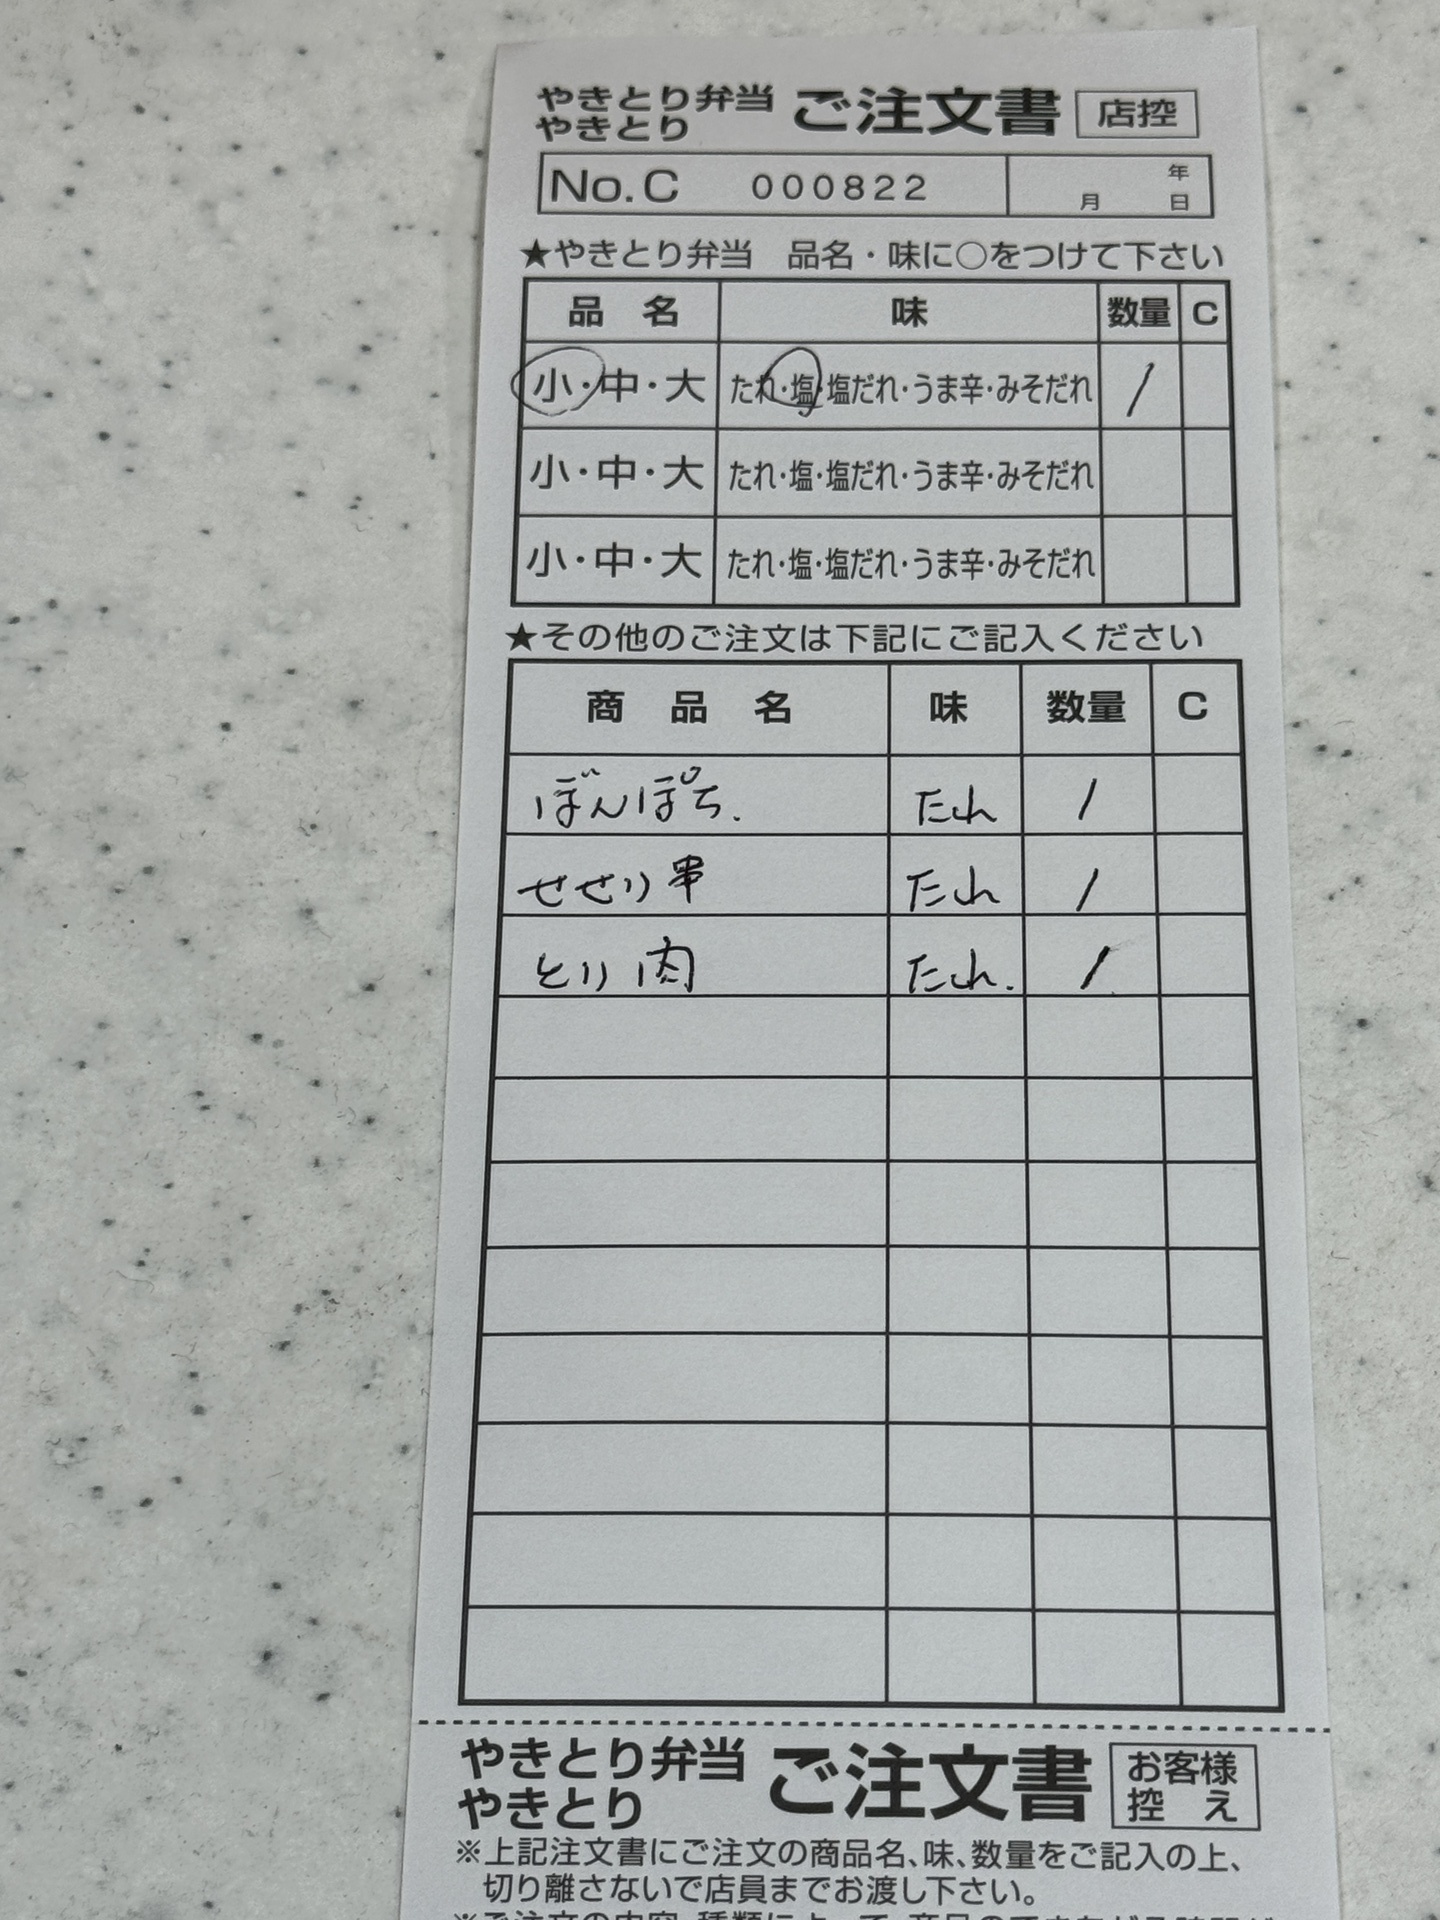 やきとり弁当
やきとり ご注文書 店控
No.C 000822 年 月 日
★やきとり弁当 品名・味に○をつけて下さい
品 名 味 数量 C
小・中・大 たれ・塩・塩だれ・うま辛・みそだれ 1
小・中・大 たれ・塩・塩だれ・うま辛・みそだれ
小・中・大 たれ・塩・塩だれ・うま辛・みそだれ
★その他のご注文は下記にご記入ください
商 品 名 味 数量 C
ぼんぽち. たれ 1
せせり串 たれ 1
とり肉 たれ. 1
やきとり弁当
やきとり ご注文書 お客様控え
※上記注文書にご注文の商品名、味、数量をご記入の上、
切り離さないで店員までお渡し下さい。